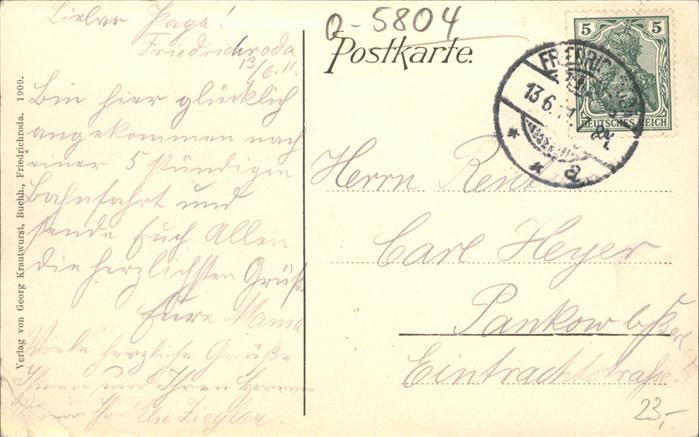 Lieber Papa!
Friedrichroda
13/6.11.
Bin hier glücklich
angekommen nach
einer 5 stündigen
Bahnfahrt und
sende Euch Allen
die herzlichsten Grüße
Eure Mama
Viele herzliche Grüße
Ihnen und Ihren Herren
Ihre Else Ziegler.
Verlag von Georg Krautwurst, Buchh., Friedrichroda. 1909.
O-5804
Postkarte.
5 5
DEUTSCHES REICH
13.6.11
a
Herrn Rent
Carl Heyer
Pankow b/Berl
Eintrachtstraße
23,-